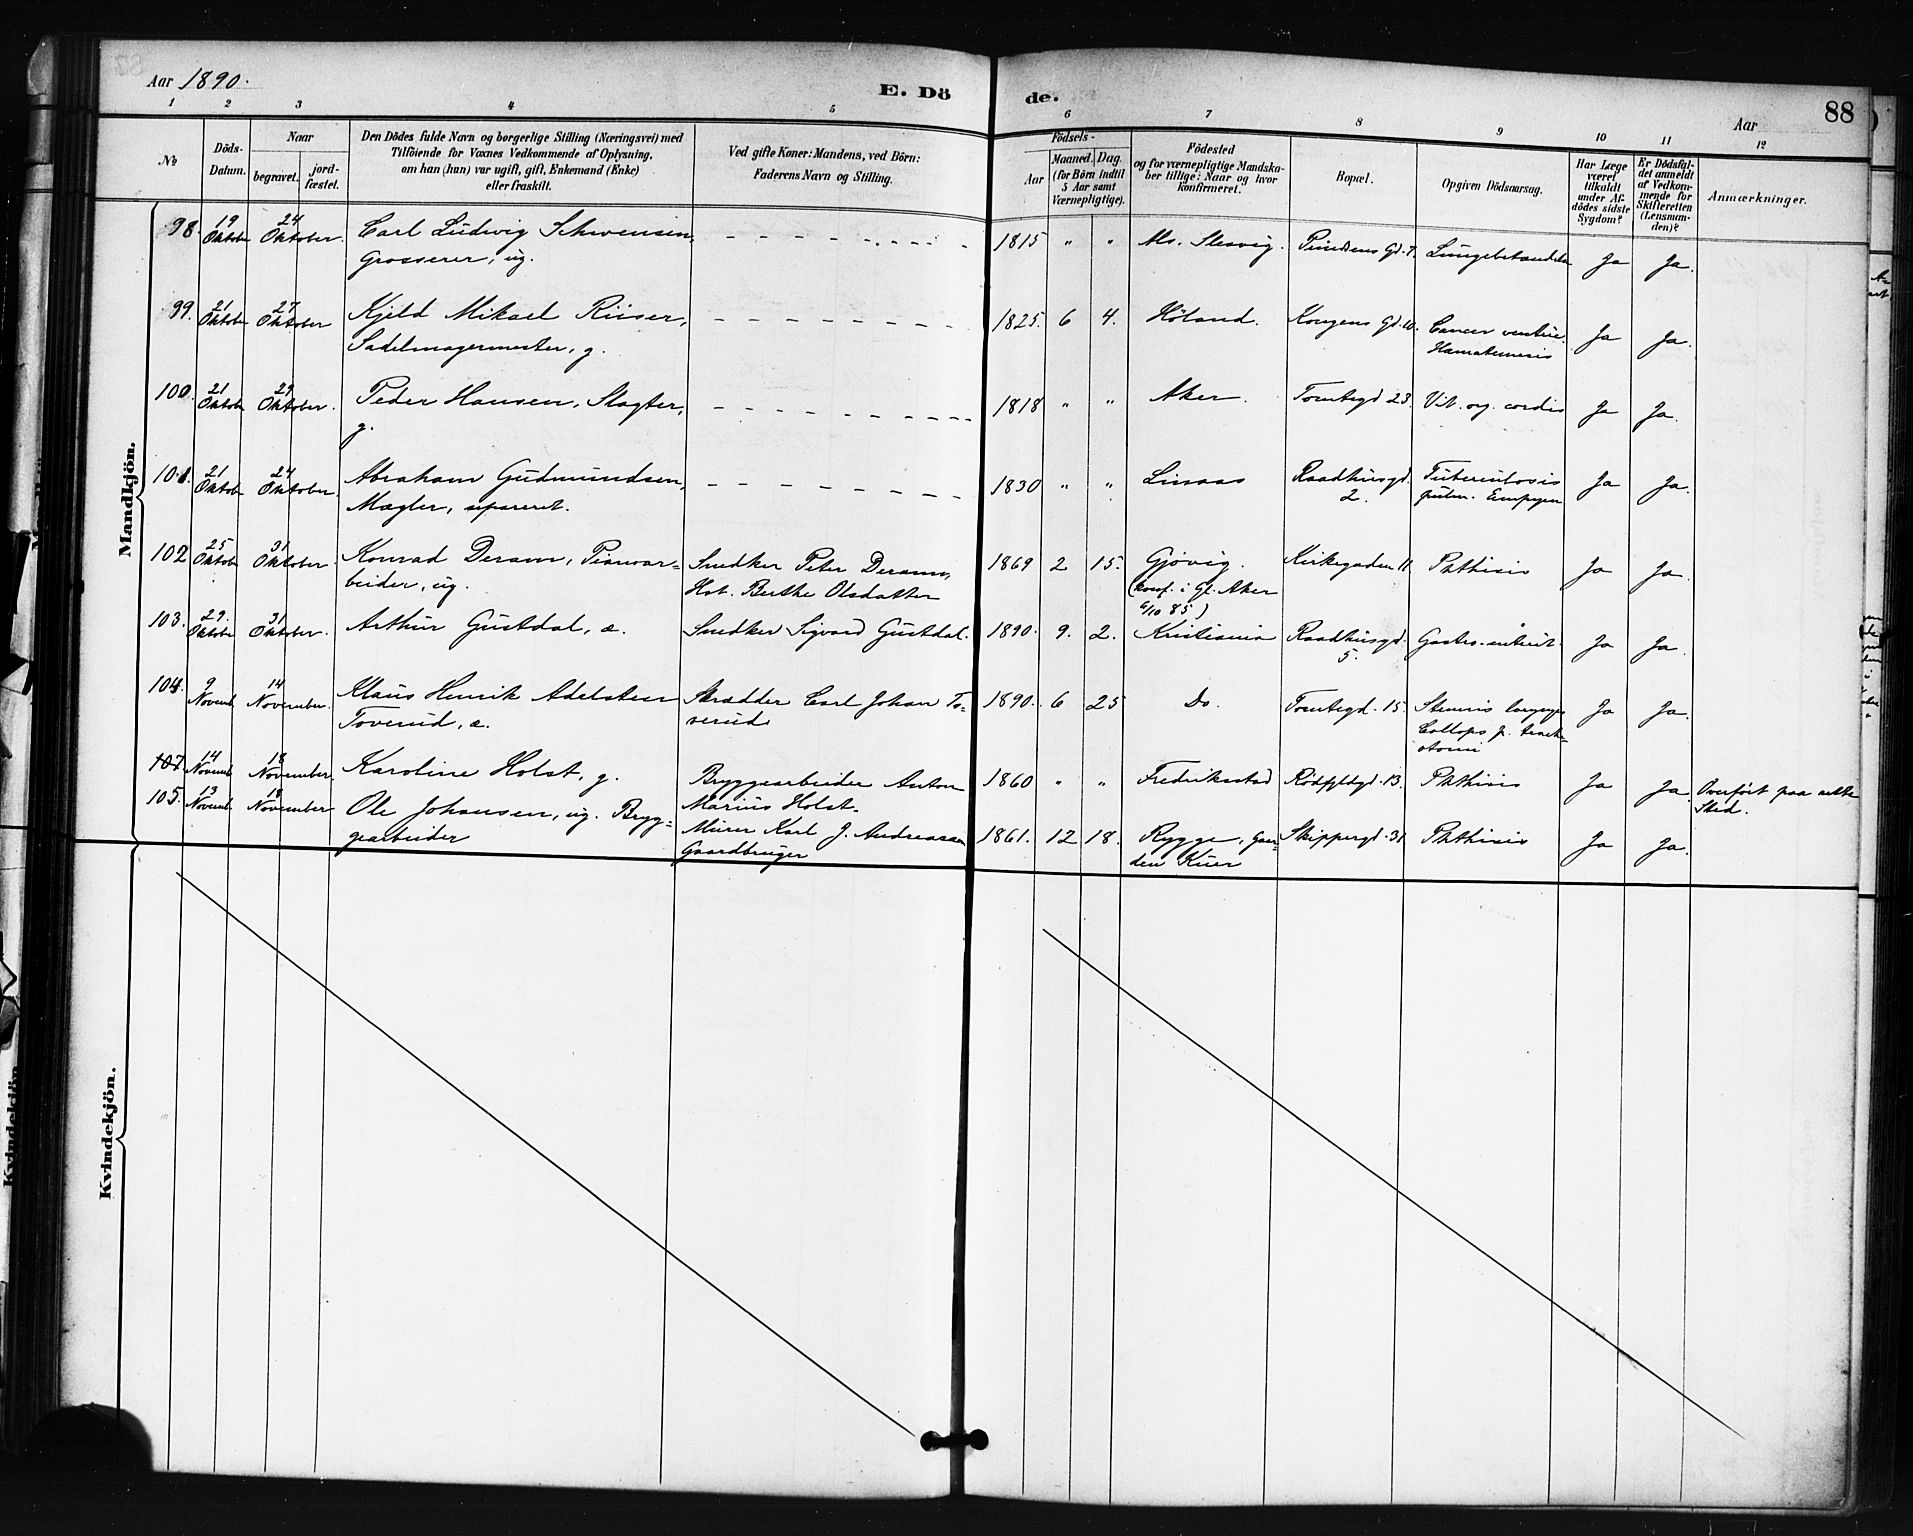 Aar 1890.
E. Dö de.
88
Aar
1 2 3 4 5 6 7 8 9 10 11 12
No
Döds-Datum.
Naar
begravet.
jord-fæstet.
Den Dödes fulde Navn og borgerlige Stilling (Næringsvei) med
Tilföiende for Voxnes Vedkommende af Oplysning,
om han (hun) var ugift, gift, Enkemand (Enke)
eller fraskilt.
Ved gifte Koner: Mandens, ved Börn:
Faderens Navn og Stilling.
Födsels-
Aar
Maaned. Dag.
(for Börn indtil
5 Aar samt
Værnepligtige).
Födested
og for værnepligtige Mandska-
ber tillige: Naar og hvor
konfirmeret.
Bopæl.
Opgiven Dödsaarsag.
Har Læge
været
tilkaldt
under Af-
dödes sidste
Sygdom?
Er Dödsfal-
det anmeldt
af Vedkom-
mende for
Skifteretten
(Lensman-
den)?
Anmærkninger.
Mandkjön.
98. 19 Oktober 24 Oktober. Carl Ludvig Schwensen, 1815 " " Als. Slesvig. Gd. 7. Lungebetændelse Ja Ja.
Grosserer, ug.
99. 21 Oktober 27 Oktober Kjeld Mikael Riiser, 1825. 6 4. Höland. Kongens Gd. 10. Cancer ventric. Ja Ja.
Sadelmagermester, g. Hæmatemesis
100. 21 Oktober 29 Oktober. Peder Hansen, Slagter, 1818 " " Aker. Tomtegd 23. Vit. org. cordis Ja Ja.
g.
101. 21 Oktober 24 Oktober. Abraham Gudmundsen, 1830 " " Raadhusgd. Tuberculosis Ja Ja.
Mægler, separeret. 2. pulm. Empyem
102 25 Oktober 31 Oktober Konrad Deramm, Pianoar= Snedker Peter Deramm, 1869 2 15. Gjövig. Kirkegaden 11. Phthisis Ja Ja.
beider, ug. Hst. Berthe Olsdatter (konf. i Gl. Aker
4/10 85)
103. 29. Oktober 31 Oktober. Arthur Gustdal, æ. Snedker Sigvard Gustdal. 1890. 9. 2. Kristiania Raadhusgd. Gastro-enterit. Ja Ja.
5.
104. 9 Novemb. 14 November. Klaus Henrik Adelsteen Skrædder Carl Johan To= 1890. 6 25 Do. Tomtegd. 15. Stenosis laryngis Ja Ja.
Toverud, æ. verud Collaps p. trach=
otomi
107. 14 Novemb. 18 November. Karoline Holst, g. Bryggearbeider Anton 1860 " " Fredriksstad Rödfyldgd. 13. Phthisis Ja Ja. Overfört paa rette
Marius Holst. Sted.
105. 13 Novemb. 18 November Ole Johansen, ug. Bryg= Murer Karl J. Andreassen 1861. 12 18. Rygge, Gaar= Skippergd. 31 Phthisis Ja Ja.
gearbeider Gaardbruger den Kuer
Kvindekjön.